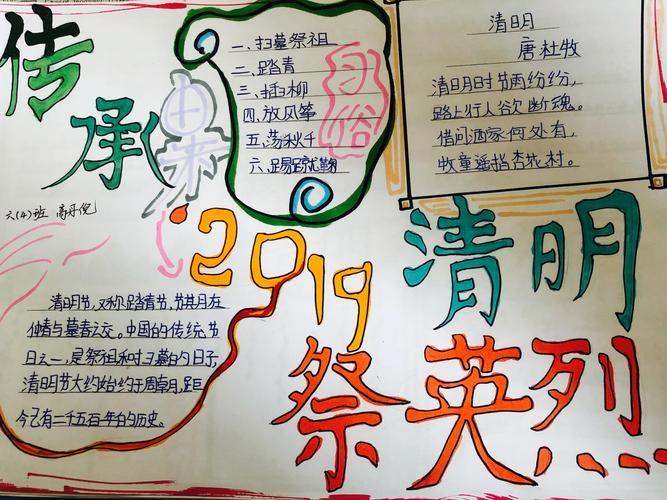 传承
由来
习俗
一、扫墓祭祖
二、踏青
三、插柳
四、放风筝
五、荡秋千
六、踢蹴鞠
清明
唐杜牧
清明时节雨纷纷,
路上行人欲断魂。
借问酒家何处有,
牧童遥指杏花村。
六(4)班 高丹
2019
清明
祭英烈
清明节,又称踏青节,节其月在
仲春与暮春之交。中国的传统节
日之一,是祭祖和扫墓的日子,
清明节大约始约于周朝,距
今已有二千五百年的历史。